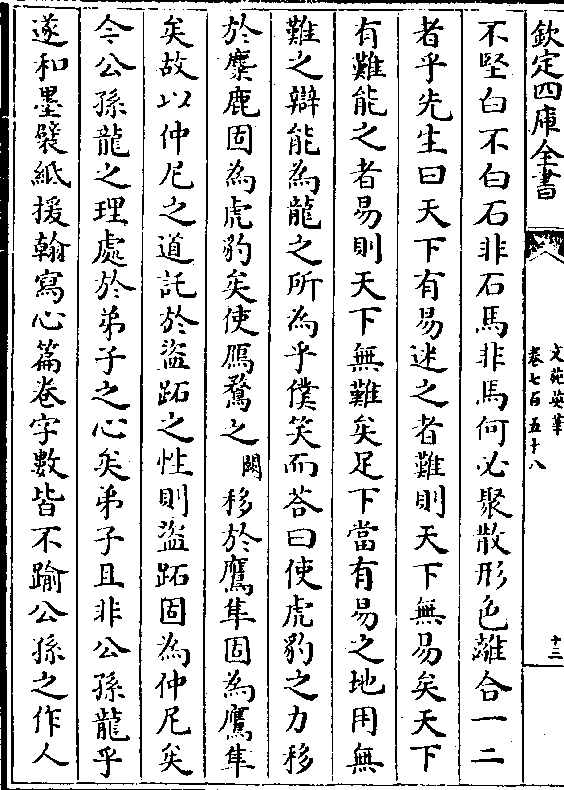 欽定四庫全書
文苑英華
卷七百五十八
十三
不堅白不白石非石馬非馬何必聚散形色離合一二
者乎先生曰天下有易迷之者難則天下無易矣天下
有難能之者易則天下無難矣足下當有易之地用無
難之辯能為龍之所為乎僕笑而荅曰使虎豹之力移
於麋鹿固為虎豹矣使鴈鶩之闕移於鷹隼固為鷹隼
矣故以仲尼之道託於盜跖之性則盜跖固為仲尼矣
今公孫龍之理處於弟子之心矣弟子且非公孫龍乎
遂和墨襞紙援翰寫心篇卷字數皆不踰公孫之作人